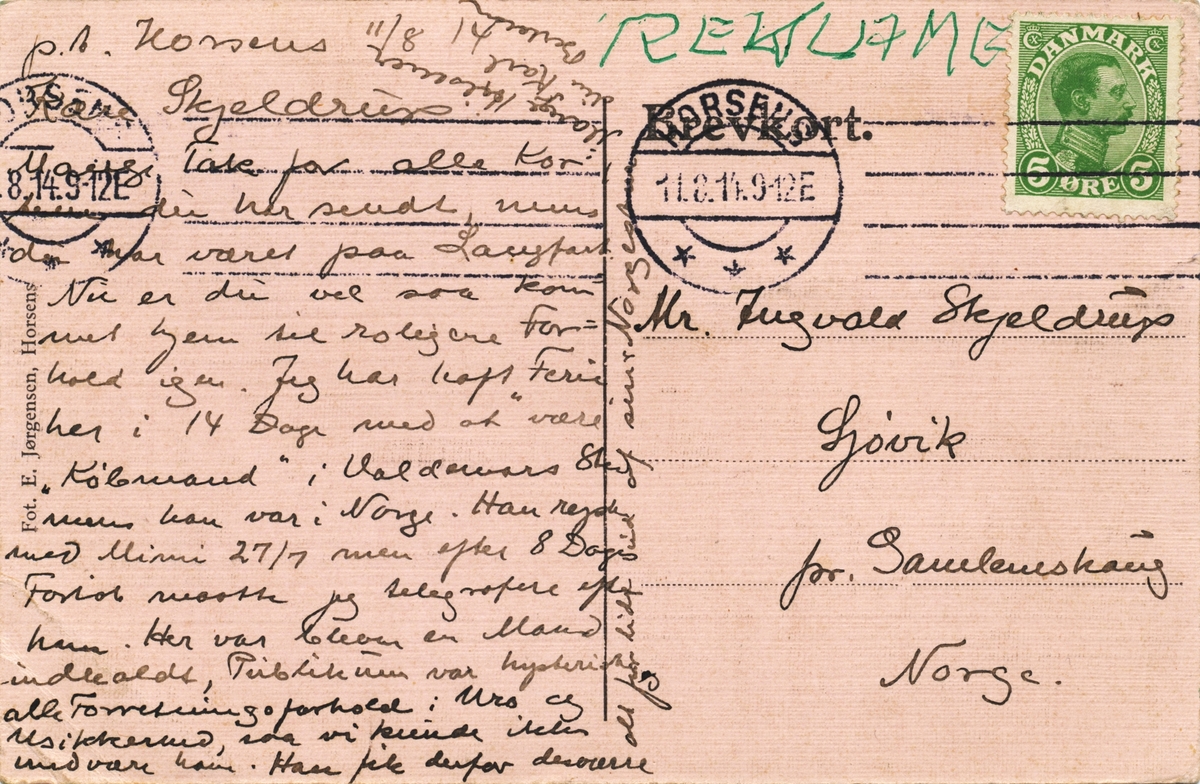 p.t. Horsens
Kære Skjeldrup.
Mange Tak for alle Kor-
tene du har sendt, mens
du har været paa Langfart.
Nu er du vel saa kom
met hjem til roligere For=
hold igen. Jeg har haft Ferie
her i 14 Dage med at "være
„Købmand" i Valdemars Sted
mens han var i Norge. Han rejste
med Mimi 27/7 men efter 8 Dages
Forløb maatte jeg telegrafere efter
ham. Her var bleven en Mand
indkaldt, Publikum var hysterisk
alle Forretningsforhold i Uro og
Usikkerhed, saa vi kunde ikke
undvære ham. Han fik derfor desværre
alt for lidt ud af sin Norges
Mange Hilsener
din Karl
8/11
REKLAME
DANMARK
5 ØRE 5
Brevkort.
HORSENS
11.8.14.9-12E
HORSENS
.8.14.9-12E
Mr. Ingvald Skjeldrup
Gjøvik
pr. Gamlemshaug
Norge.
Fot. E. Jørgensen, Horsens